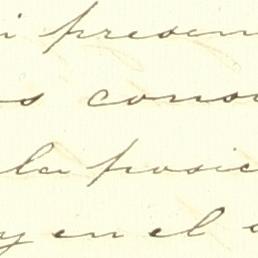 i presen
s cons
la posic
y en el